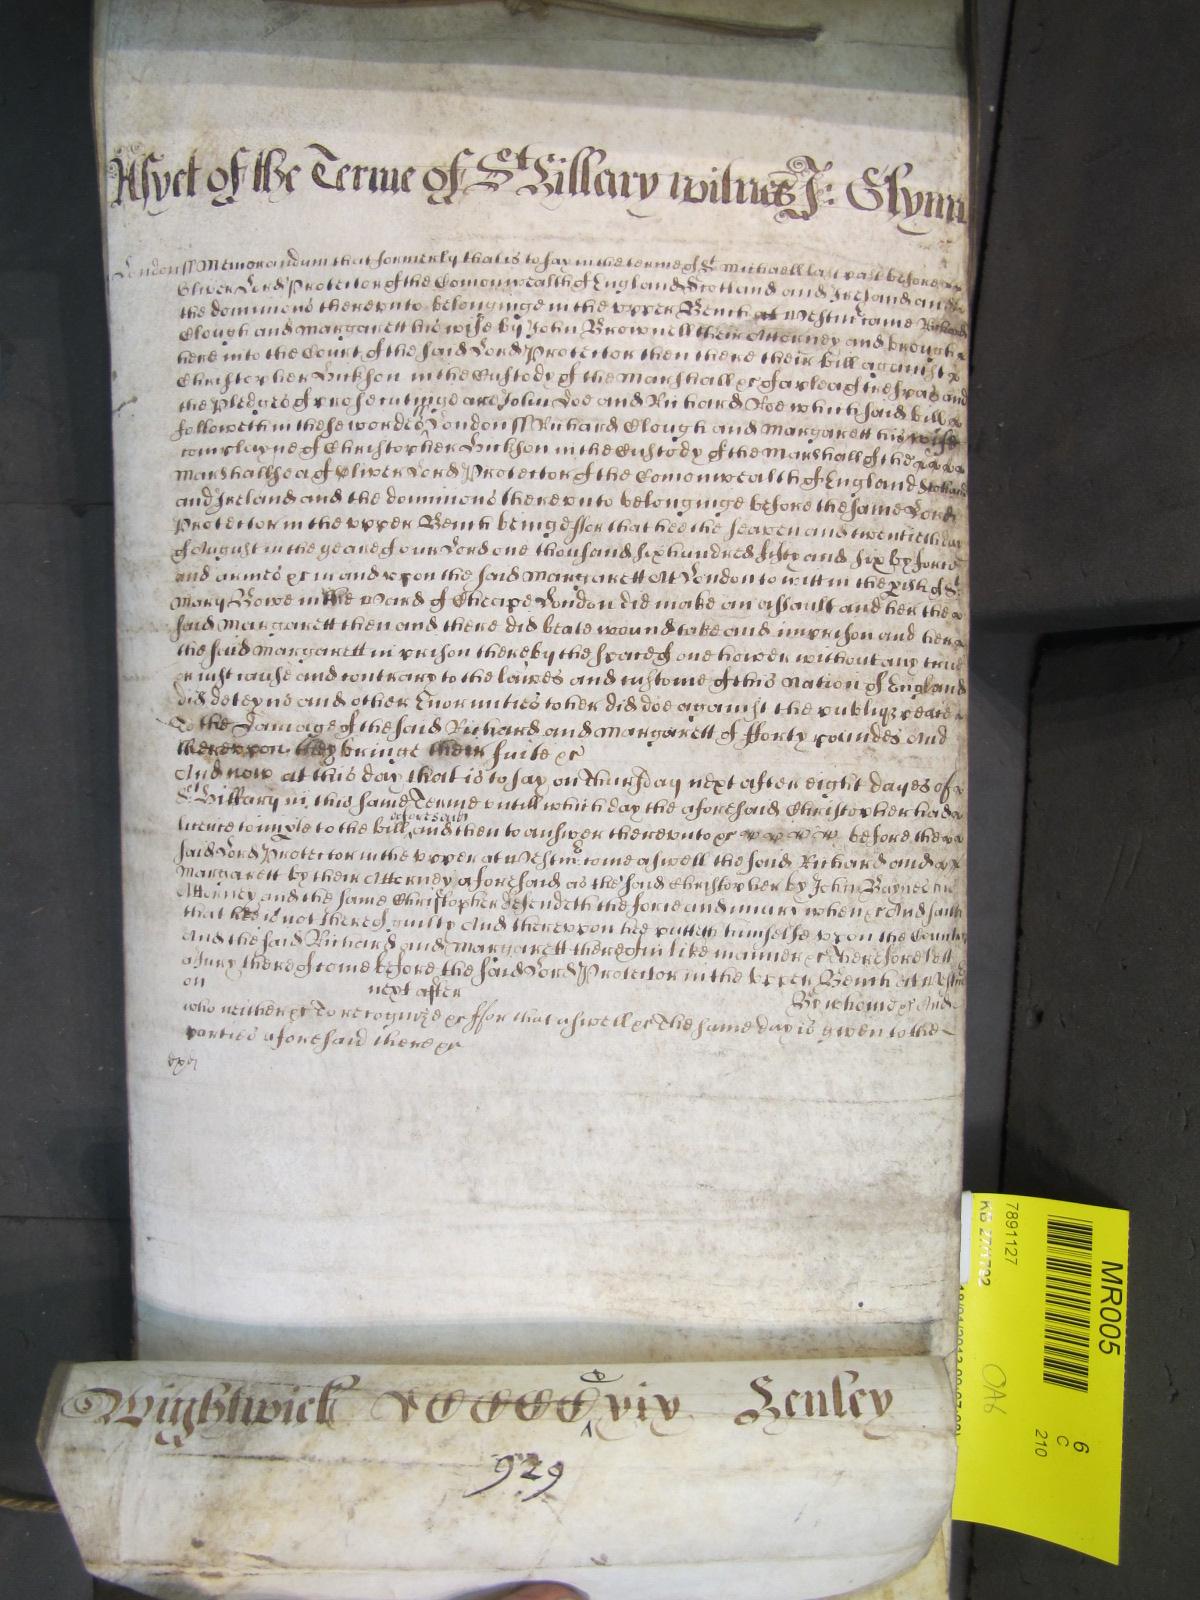 Asyet of the Terme of St Hillary witnes J: Glynn
London ss Memorandum that formerly that is to say in the terme of St Michaell last past before
Oliver Lord Protector of the Comonwealth of England Scotland and Ireland and
the dominons therevnto belonginge in the vpper Bench at Westm came Richard
Clough and Margarett his wife by John Brownell their Attorney and brought
here into the Court of the said Lord Protector then there their bill against
Christopher Hickson in the Custody of the Marshall &c of a plea of trespas and
the pledges of prosecutinge are John Doe and Richard Roe which said bill
followeth in these wordes London ss Richard Clough and Margarett his wife
complayne of Christopher Hickson in the Custody of the Marshall of the
Marshallsea of Oliver Lord Protector of the Comonwealth of England Scotland
and Ireland and the dominons therevnto belonginge before the same Lord
Protector in the vpper Bench beinge ffor that hee the seaven and twentieth day
of August in the yeare of our Lord one thousand six hundred fifty and six by force
and armes &c in and vpon the said Margarett At London to witt in the pish of St
Mary Bowe in the Ward of Cheape London did make an assault and her the
said Margarett then and there did beate wound take and imprison and her
the said Margarett in prison thereby the space of one hower without any true
or iust cause and contrary to the lawes and custome of this Nation of England
did deteyne and other Enormities to her did doe against the publiq peace
To the Damage of the said Richard and Margarett of fforty poundes And
therevpon they bringe their suite &c
And now at this day that is to say on Thursday next after eight dayes of
St Hillary in this same Terme vntill which day the aforesaid Christopher had
licence to imple to the bill aforesaid and then to answer therevnto &c before the
said Lord Protector in the vpper at Westm come aswell the said Richard and
Margarett by their Attorney aforesaid as the said Christopher by John Baynes his
Attorney and the same Christopher defendeth the force and iniury when &c And saith
that hee is not thereof guilty And therevpon hee putteth himselfe vpon the Country
And the said Richard and Margarett thereof in like manner &c Therefore lett
a Jury thereof come before the said Lord Protector in the vpper Bench at Westm
on next after By whome &c And
who neither &c To recognize &c ffor that aswell &c The same day is given to the
parties aforesaid there &c
Wightwick CCCCC xix Henley
929
MR005
7891127
KB 27/1792
6
C
210
OA6